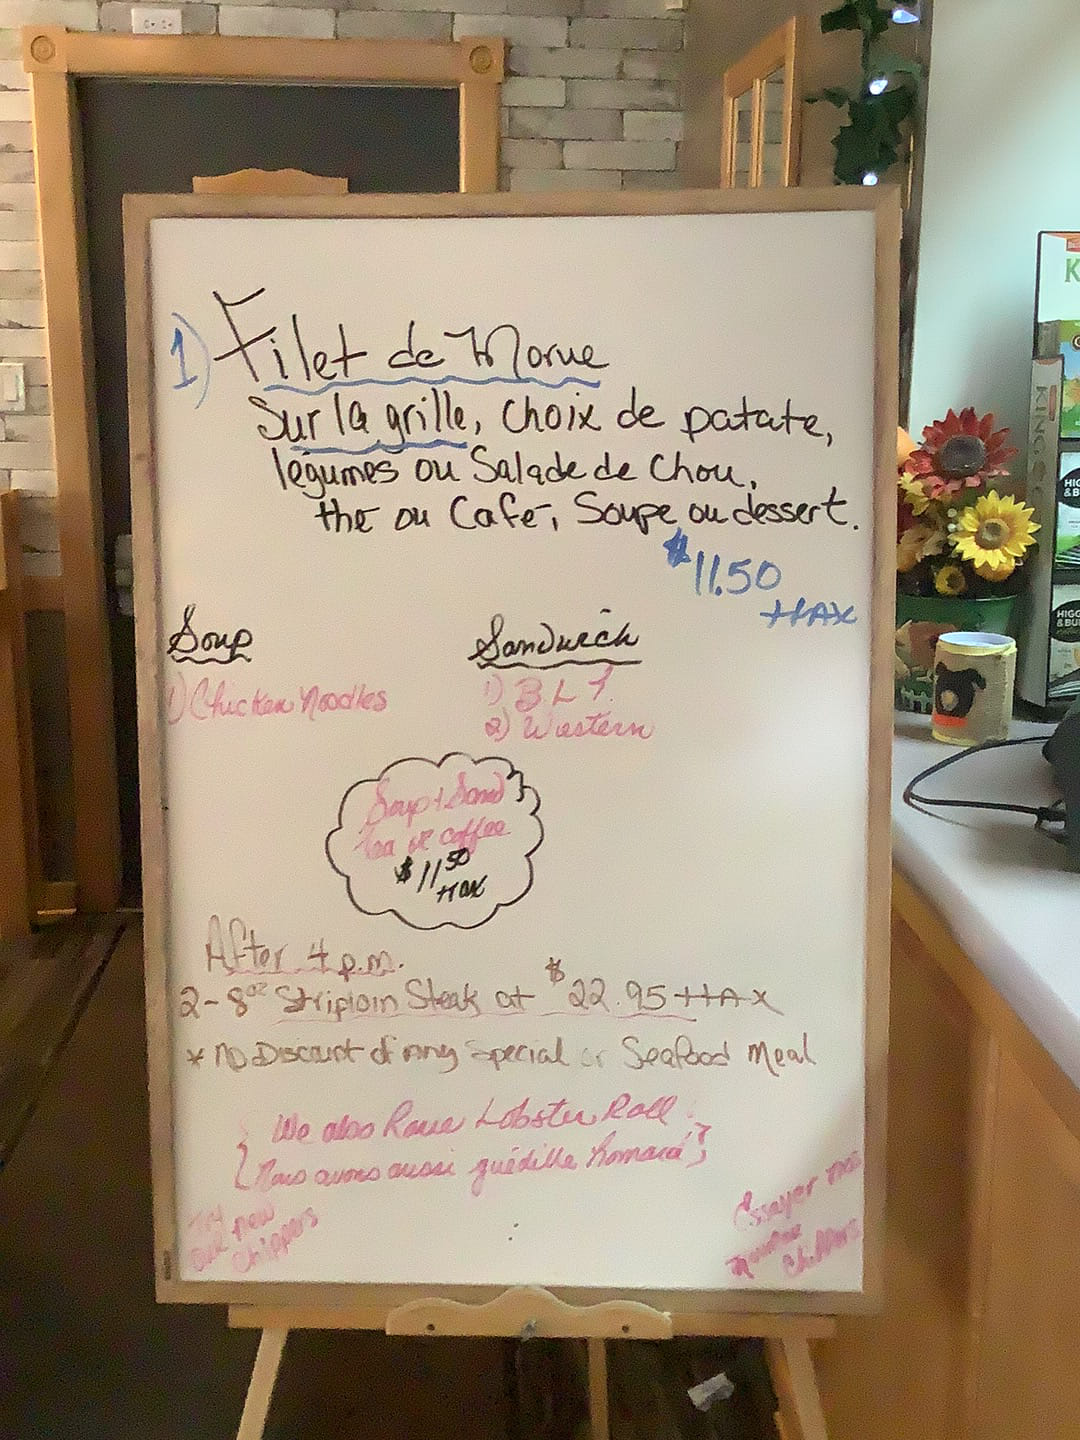 1) Filet de Morue
Sur la grille, choix de patate,
légumes ou Salade de Chou,
thé ou Café, Soupe ou dessert.
$11.50
+tAX
Soup
1) Chicken Noodles
Sandwich
1) B L T.
2) Western
Soup + Sand
tea or coffee
$11.50
+tax
After 4 p.m.
2 - 8oz Striploin Steak at $22.95 +tAX
* NO Discount of Any Special or Seafood Meal
We also have Lobster Roll
Nous avons aussi guédille homard
Try
our new
Chippers
Essayer nos
nouveau
Chippers
K
KING
HIG
& B
HIGG
& BU